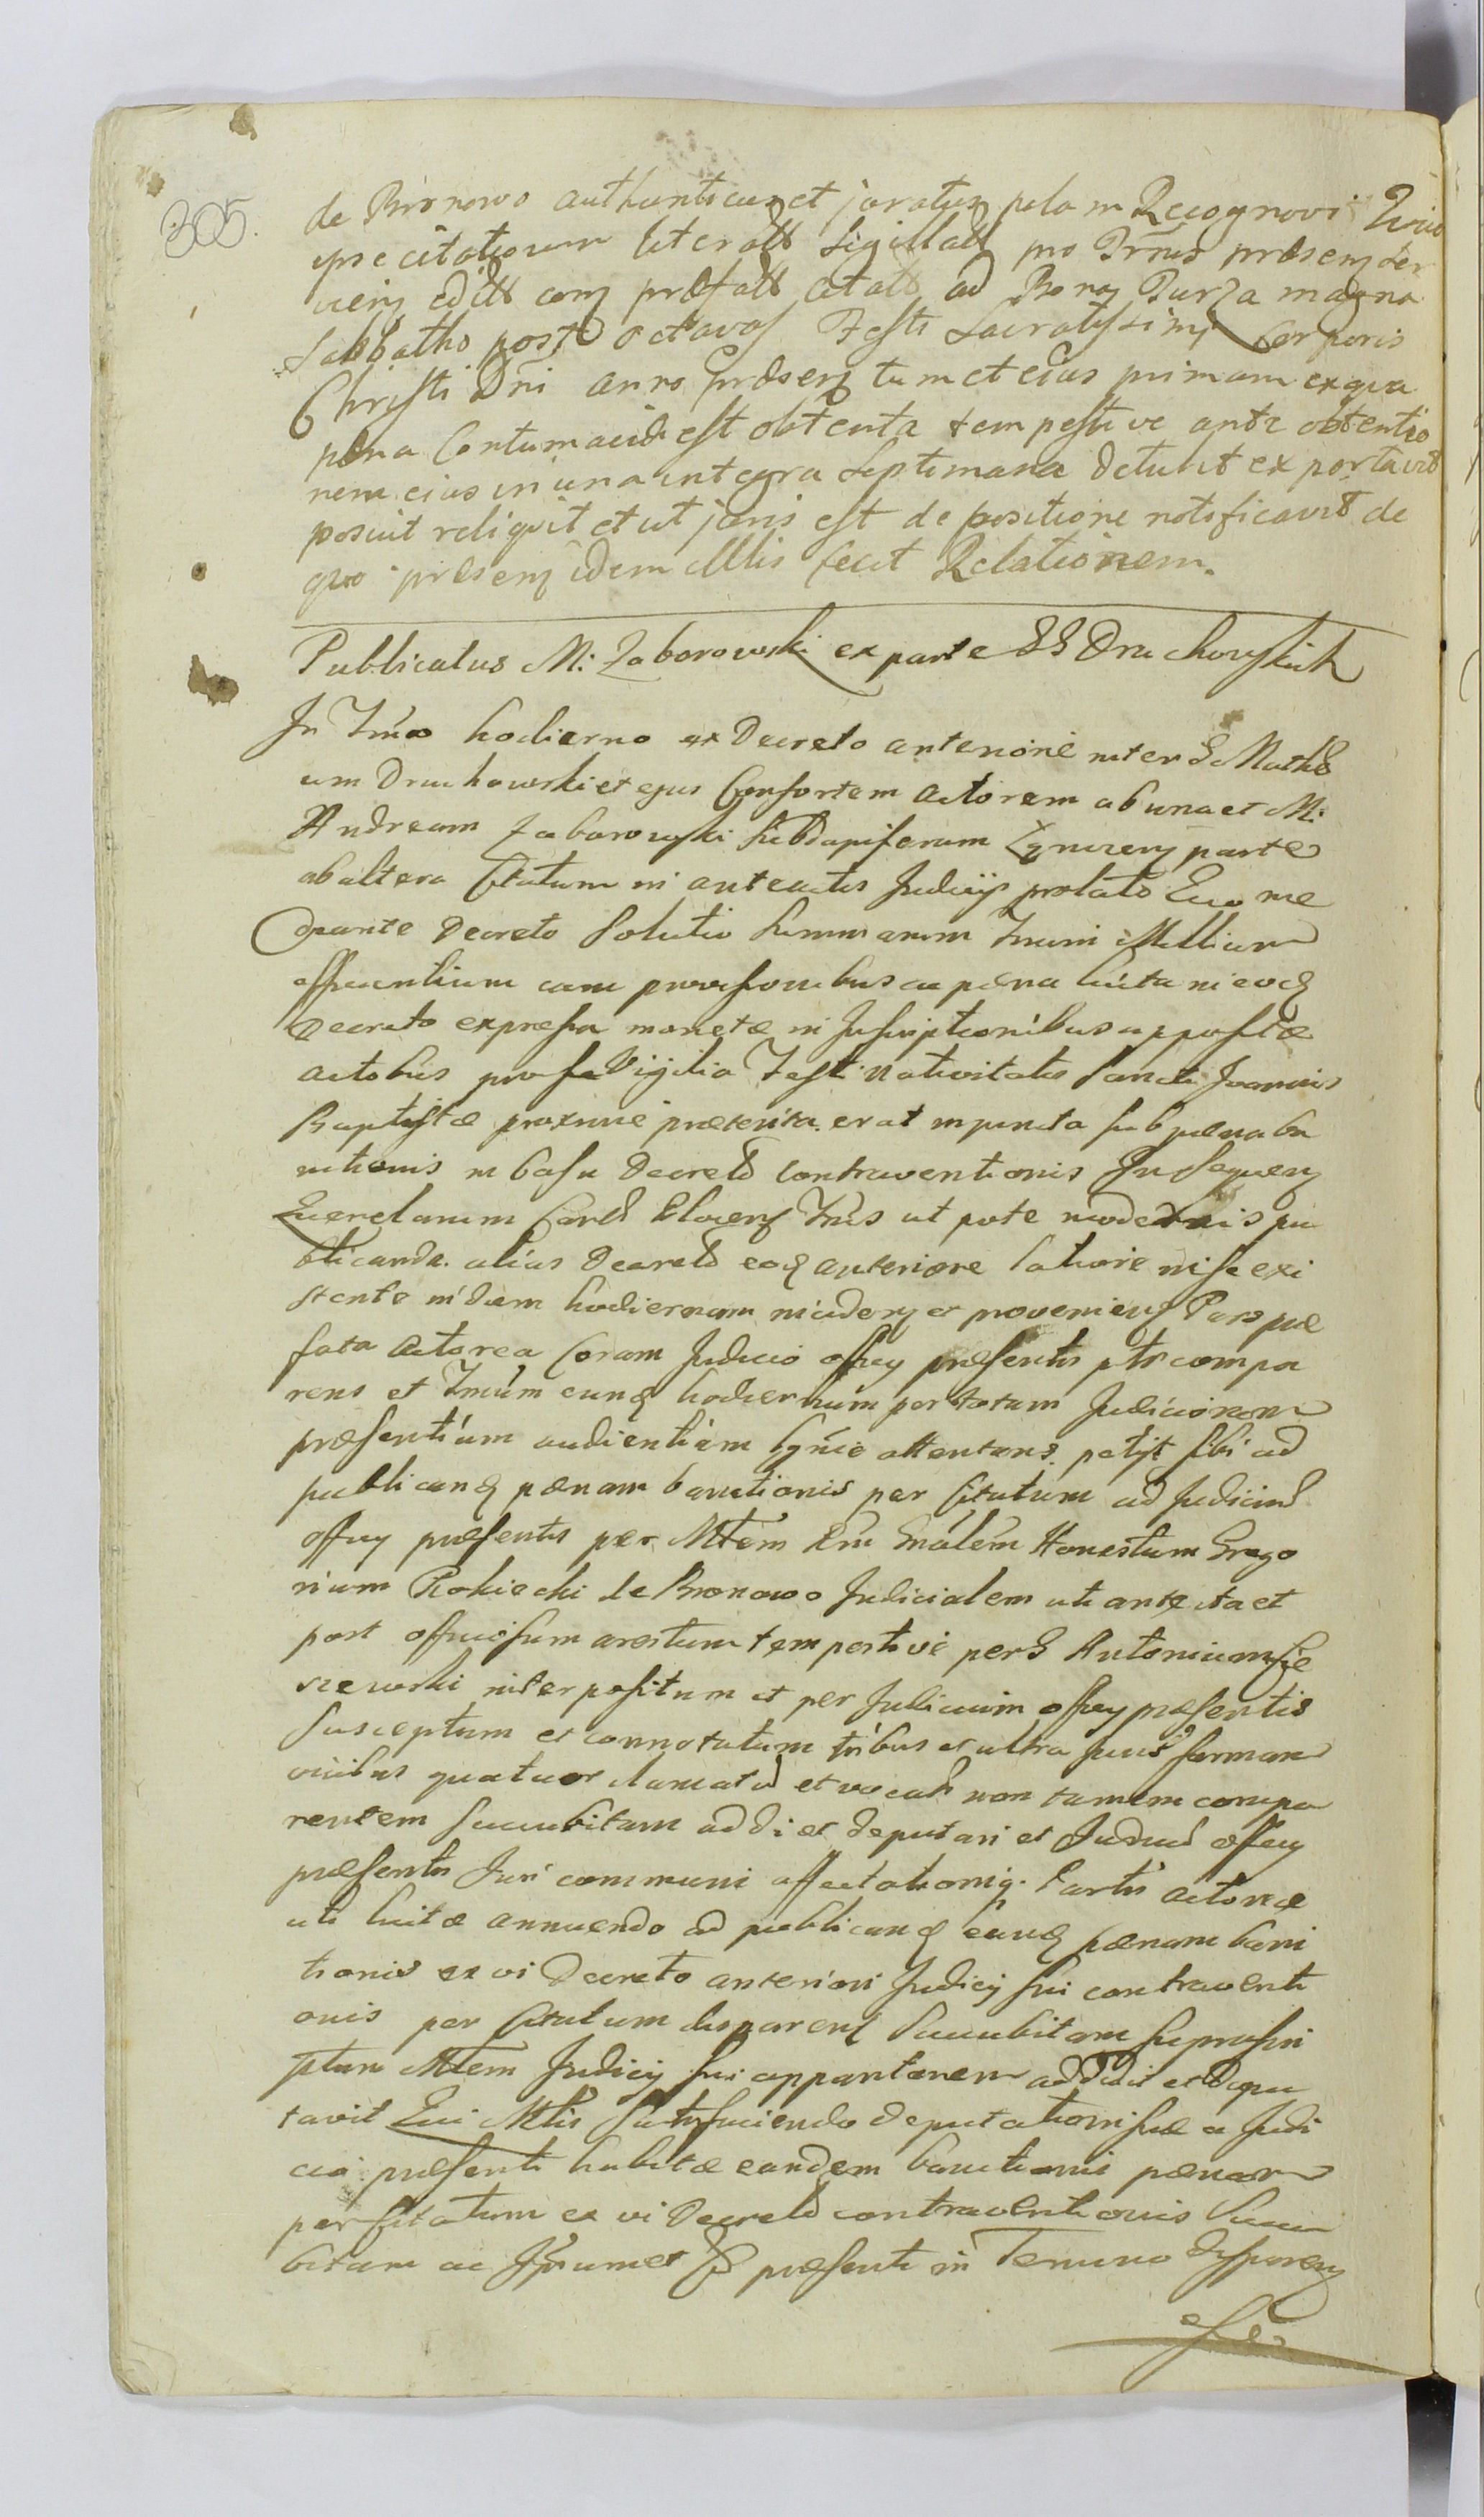 305.
de Bronowo authenticus et juratus palam Recognovi Quia
ipse citationum literall Sigillall pro Trnis praesen ser
viens edill com praefall citall ad Bona Purza magna
Sabbatho post octavas Festi Sacratissimi Corporis
Christi Dni anno praesen tum et eius primam ex qua
paena Contumaciae est obtenta tempestive ante obtentio
nem eius in una integra Septimana Detulit exportavit
posuit reliquit et ut juris est de positione notificavit de
quo praesen idem Mlis fecit Relationem.
Publicatus M: Zaborowski ex parte SS Druchowskich
In Tmo hodierno ex Decreto anteriore inter S Mathe
um Druchowski et ejus Consortem actorem ab una et M:
Andream Zaborowski Subdapiferum parte
ab altera Citatum in anteactis Judicijs prolato Quo me
diante Decreto Solutio Summarum Trium Millium
effluentium cum provisionibus ac paena luita in eodq
Decreto expressa monetae in Inscriptionibus appositae
actoribus pro sa Vigilia Festi Nativitatis Sancti Joannis
Baptistae proxime praeterita erat injuncta sub paena ba
nitionis in Casu Decreti contraventionis In sequen
Querelarum Tnis ut pote modernis pu
blicanda alias Decreto eodq anteriore latiore in se exi
stente in diem hodiernam inciden et provenien Pars prae
fata actorea Coram Judicio offey praesentis ptr compa
rens et Tmum eunq hodiernum per totam Judiciorum
praesentium audientiam attentans petijt sibi ad
publicanq paenam banitionis per Citatum ad Judicium
offey praesentis per Mtem Rni Gnalem Honestum Grego
rium Rokicki de Bronowo Judicialem uti ante ita et
post officiosum arestum tempestive per S Antonium Cie
szewski interpositum et per Judicium offey praesentis
Susceptum et connotatum tribus et ultra Juris formam
vicibus quatuor clamatum et vocatum non tamem compa
rentem Succubitam addi et deputari et Judicium offey
praesentis Juri communi affectationiq Partis actoreae
uti luitae annuendo ad publicanq eanq paenam bani
tionis ex vi Decreto anteriori Judicij sui contraventi
onis per Citatum disparen Succubitam suprascri
ptum Mtem Judicij sui apparitorem addidit et depu
tavit Qui Mtis Satisfaciendo deputationi suae a Judi
cio praesenti habitae eandem banitionis paenam
per Citatum ex vi Decreti contraventionis Succu
bitam ac praesenti in Termino disparen